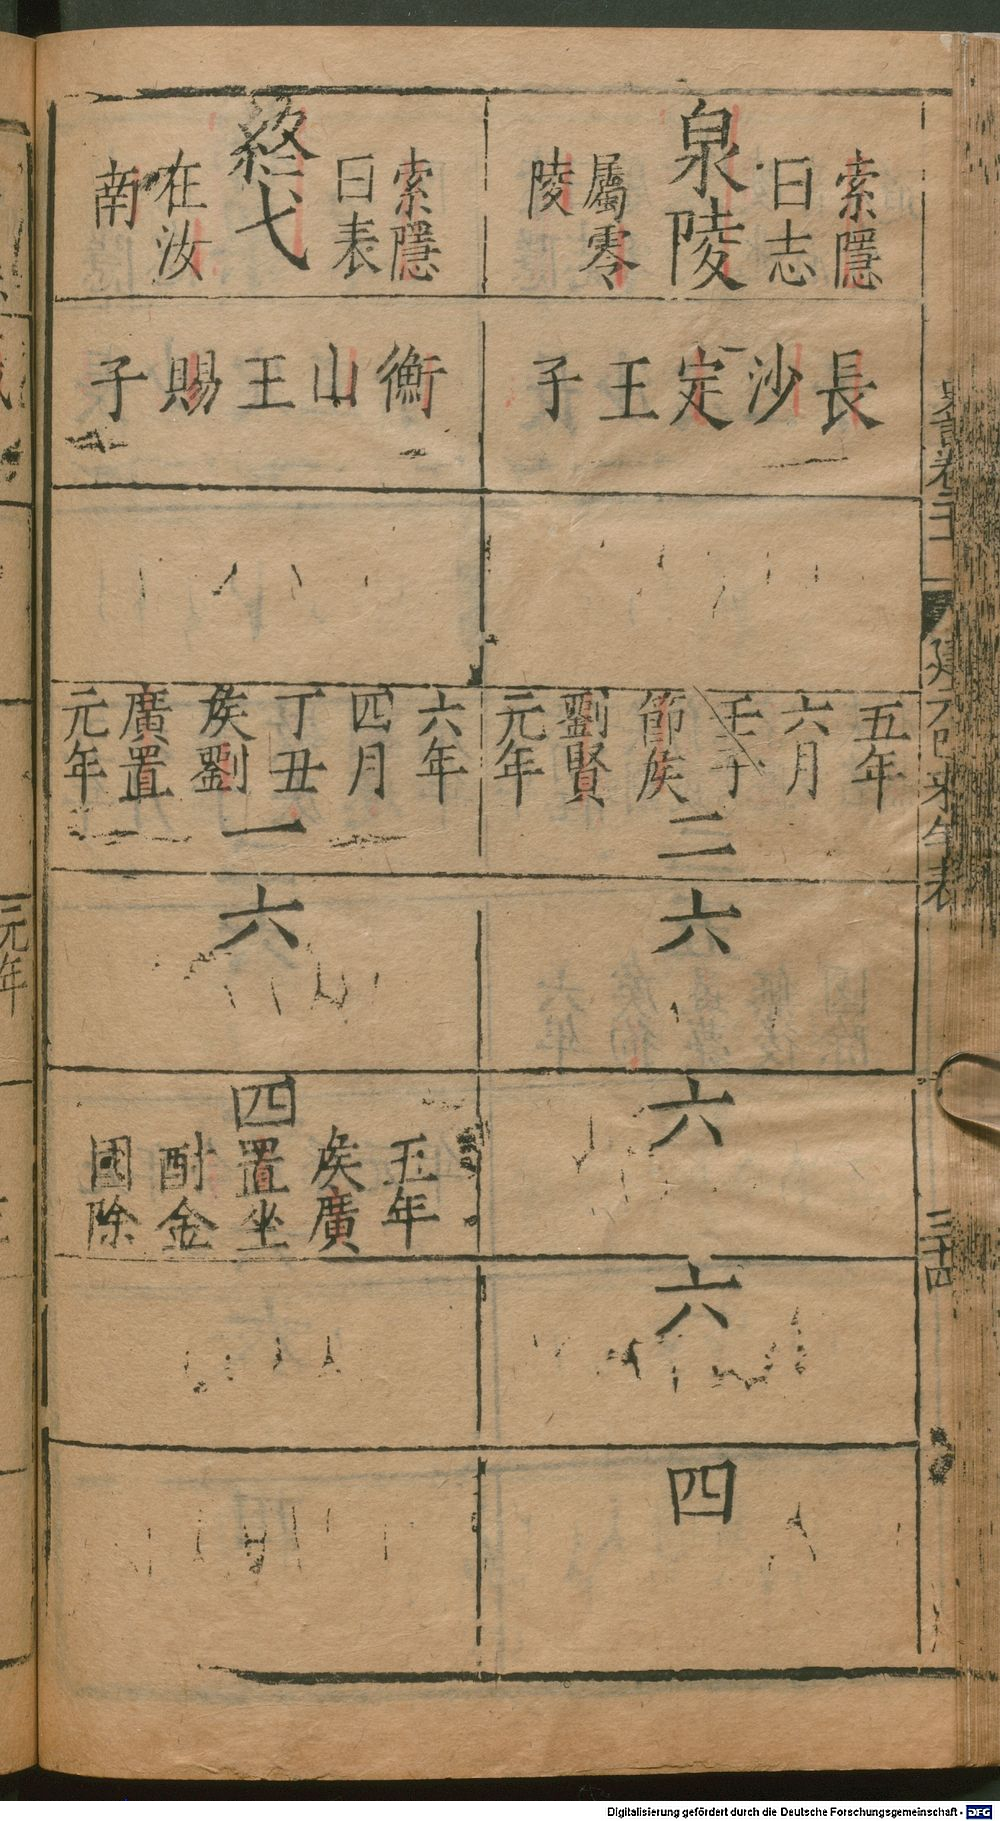 史記卷二十一
建元已來年表
三十四
索隱
曰志
泉陵
屬零
陵
長沙定王子
五年
六月
壬子
節矦
劉賢
元年
二
六
六
六
四
索隱
曰表
終弋
在汝
南
衡山王賜子
六年
四月
丁丑
矦劉
廣置
元年
一
六
四
五年
矦廣
置坐
酎金
國除
元年
Digitalisierung gefördert durch die Deutsche Forschungsgemeinschaft - DFG